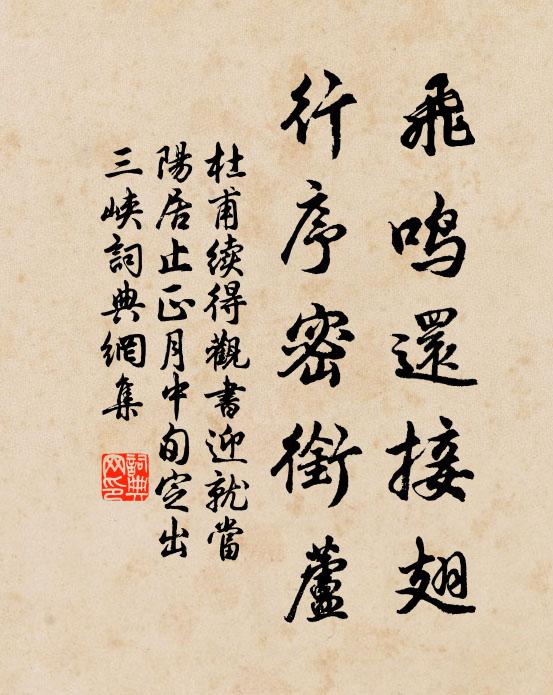 飛鳴還接翅
行序密銜蘆
杜甫續得觀書迎就當
陽居止正月中旬定出
三峽詞典網集
詞典網印